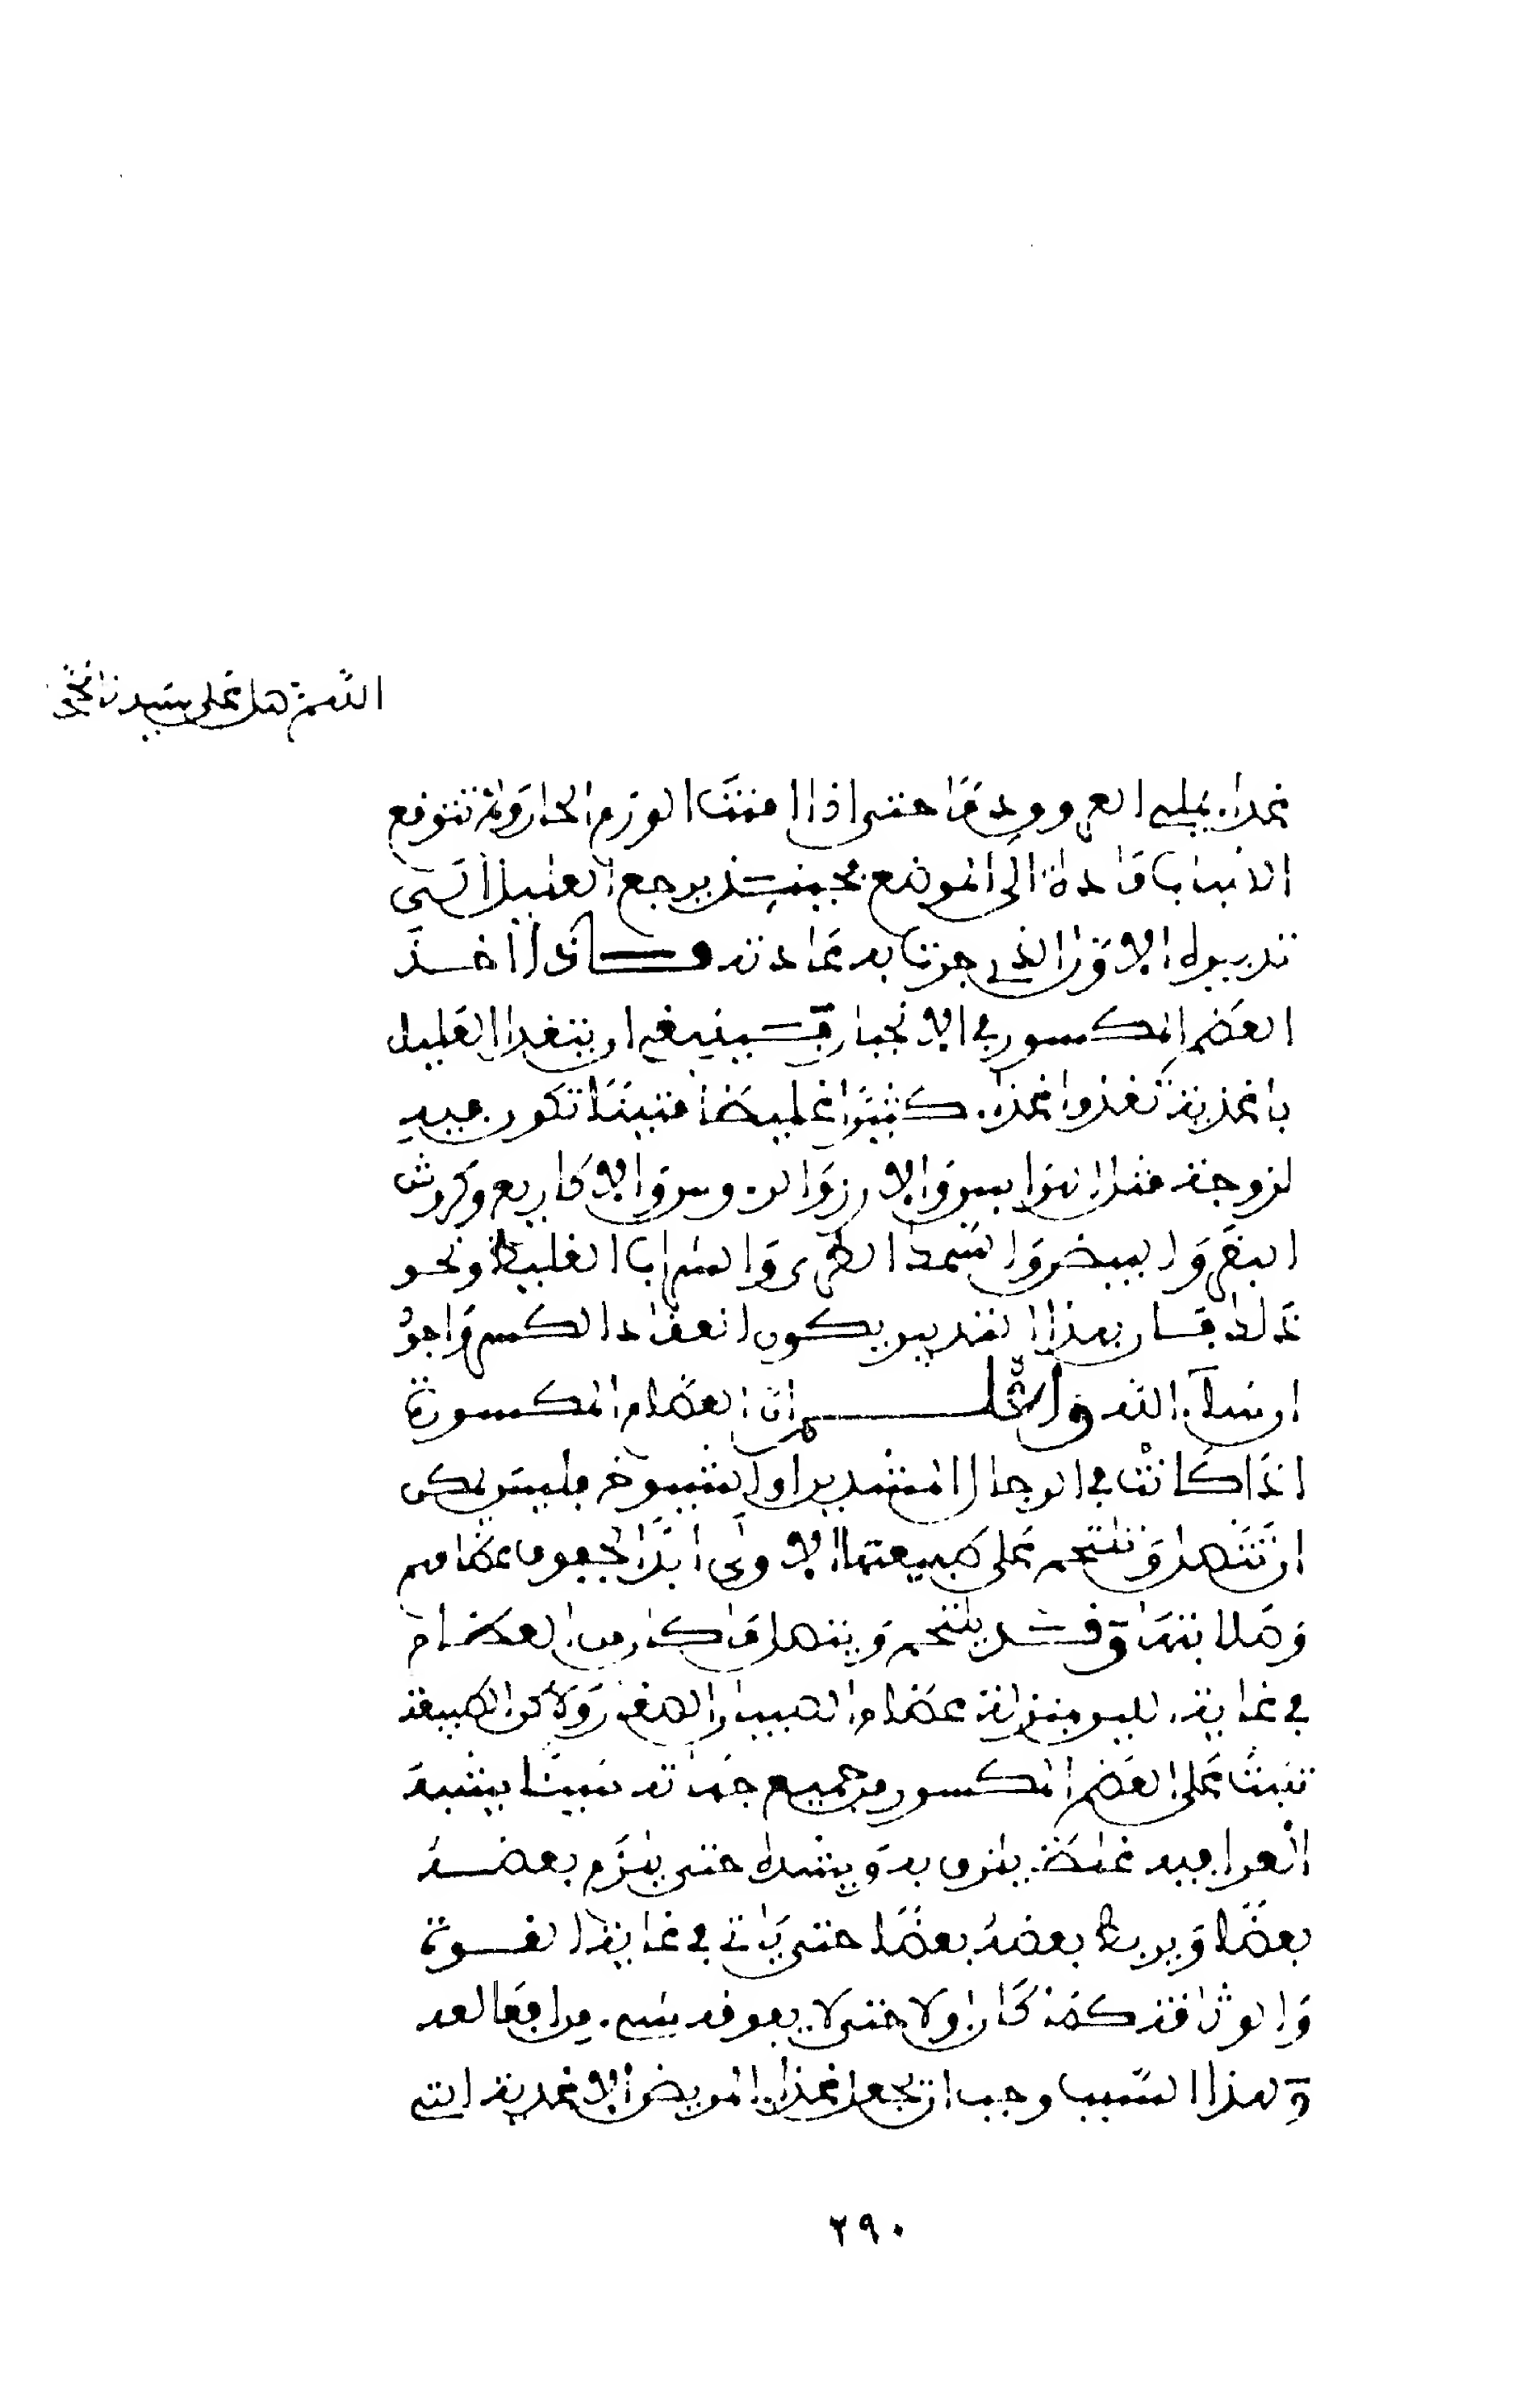 اللهم صل على سيدنا محمد
غذاء يملي العروق دما حتى اذا امنت الورم الحار ولم تتوقع
الانصباب مادة الى الموضع فحينئذ يرجع العليل الى
تدبيره الاول الذي جرت به عادته فاذا اخذ
العظم المكسور في الانجبار فينبغي ان يتغذا العليل
باغذية تغذوا غذاء كثيرا غليظا متينا تكون فيه
لزوجة مثل الهرايس والارز والروس والاكاريع وكروش
البقر والبيض والسمك الطري والشراب الغليظ ونحو
ذلك فان بهذا التدبير يكون انعقاد الكسر واجود
ان شاء الله واعلم ان العظام المكسورة
اذا كانت في الرجال المشدين او الشيوخ فليس يمكن
ان تتصل وتلتحم على طبيعتها الاولى ابدا لجفوف عظامهم
وصلابتها وقد يلتحم ويتصل ما كان من العظام
في غاية اللين بمنزلة عظام الصبيان الصغار ولاكن الطبيعة
تنبت على العظم المكسور من جميع جهاته شيئا يشبه
الغرا فيه غلظ يلزق به ويشده حتى يلزم بعضه
بعضا ويربط بعضه بعضا حتى ياتي في غاية القوة
والوثاقة كما كان اولا حتى لا يعوقه شيء من افعاله
ولهذا السبب وجب ان تجعل غذاء المريض الاغذية التي
٢٩٠